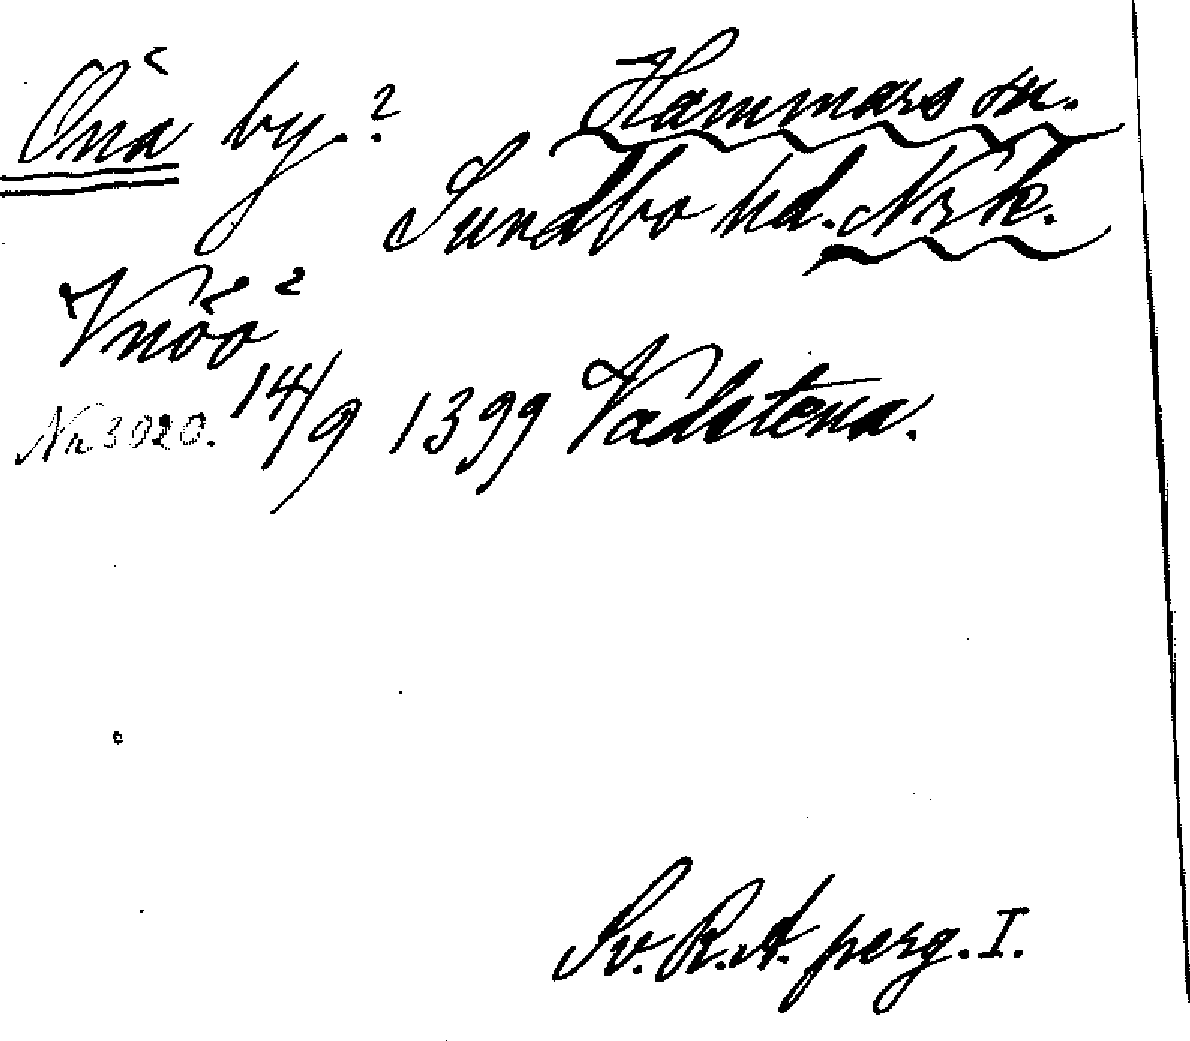 Önå by.? Hammars sn.
Sundbo hd. Nrk.
Vnöo ?
Nr 3020. 14/9 1399 Vadstena.
Sv. R.A. perg. I.